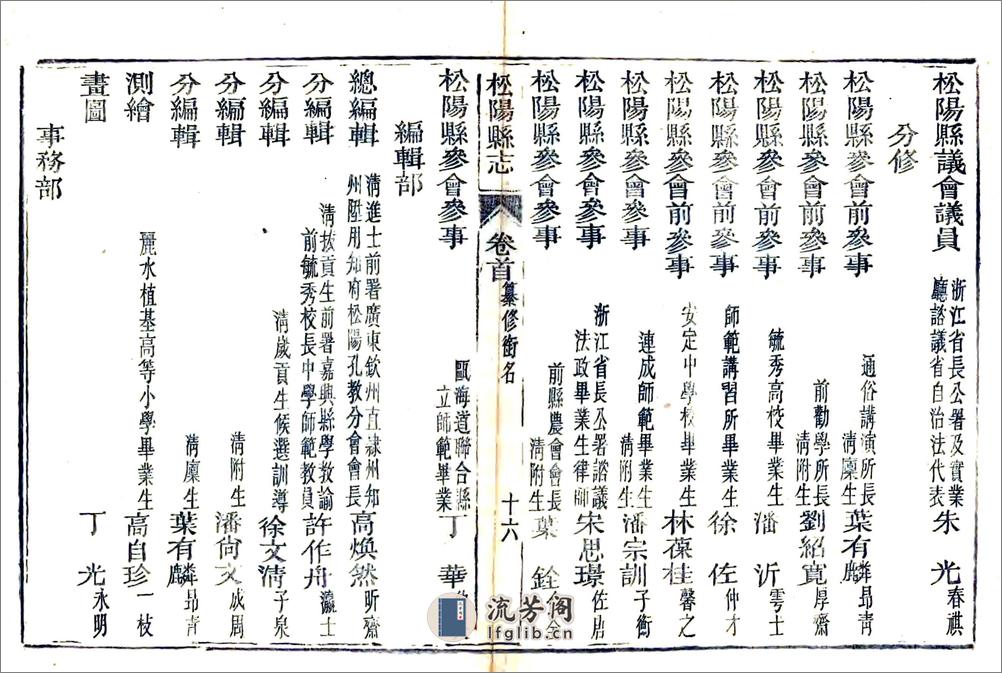 松陽縣議會議員 浙江省長公署及實業廳諮議省自治法代表 朱光 春祺
分修
松陽縣參會前參事 通俗講演所長清廩生 葉有麟 昻青
松陽縣參會前參事 前勸學所長清附生 劉紹寬 厚齋
松陽縣參會前參事 毓秀高校畢業生 潘沂 雩士
松陽縣參會前參事 師範講習所畢業生 徐佐 仲才
松陽縣參會前參事 安定中學校畢業生 林葆桂 馨之
松陽縣參會參事 連成師範畢業生清附生 潘宗訓 子衡
松陽縣參會參事 浙江省長公署諮議法政畢業生律師 宋思璟 佐唐
松陽縣參會參事 前縣農會會長清附生 葉銓
松陽縣志 卷首 纂修銜名 十六
松陽縣參會參事 甌海道聯合縣立師範畢業 丁華
編輯部
總編輯 清進士前署廣東欽州直隸州知州陞用知府松陽孔教分會會長 高煥然 昕齋
分編輯 清拔貢生前署嘉興縣學教諭前毓秀校長中學師範教員 許作舟 瀛士
分編輯 清歲貢生候選訓導 徐文清 子泉
分編輯 清附生 潘尙文 成周
分編輯 清廩生 葉有麟 昻青
測繪 麗水植基高等小學畢業生 高自珍 一枝
畫圖 丁光 永明
事務部
流芳阁
lfglib.cn